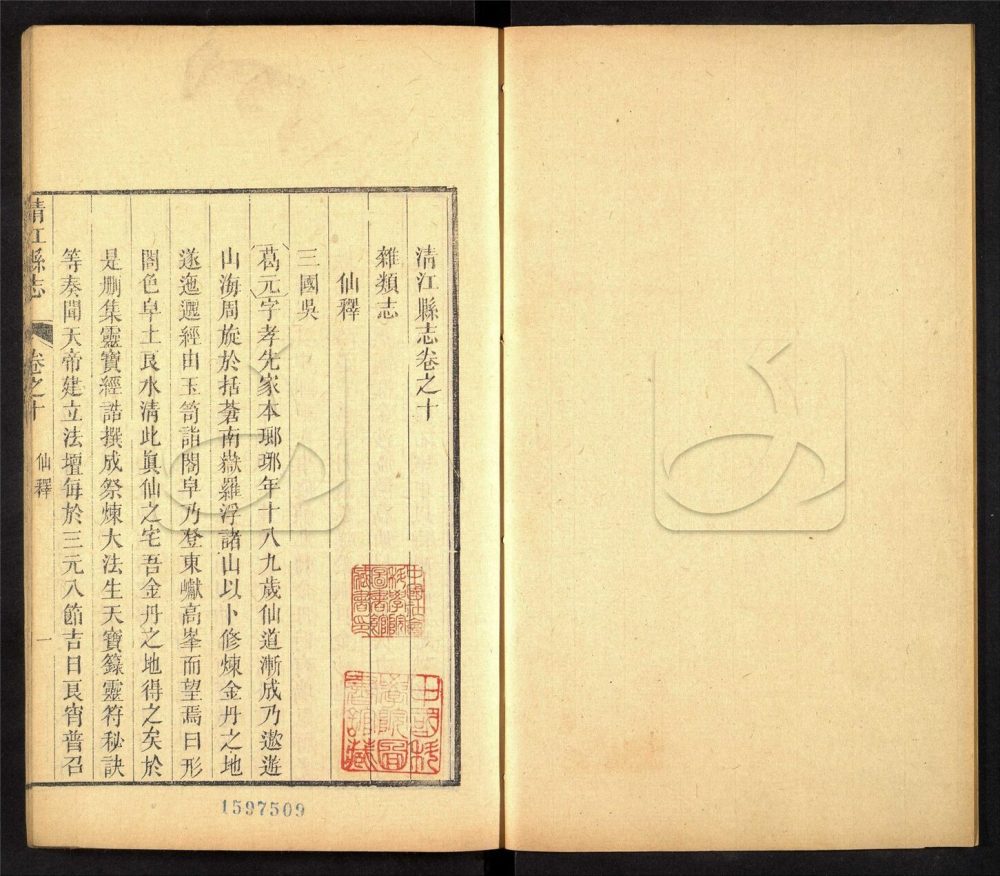 清江縣志卷之十
雜類志
仙釋
三國吳
葛元字孝先家本瑯琊年十八九歲仙道漸成乃遨遊
山海周旋於括蒼南嶽羅浮諸山以卜修煉金丹之地
遂迤邐經由玉笥詣閤皁乃登東巘高峯而望焉曰形
閤色皁土良水清此眞仙之宅吾金丹之地得之矣於
是刪集靈寶經誥撰成祭煉大法生天寶籙靈符秘訣
等奏聞天帝建立法壇每於三元八節吉日良宵普召
清江縣志
卷之十
仙釋
一
中國社會
科學院
圖書館
藏書印
中國科
學院圖
書館藏
1597509